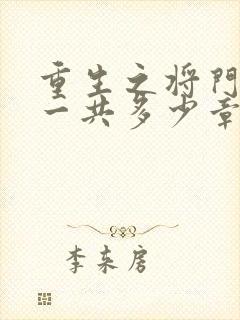 重生之将门
一共多少章
李来房